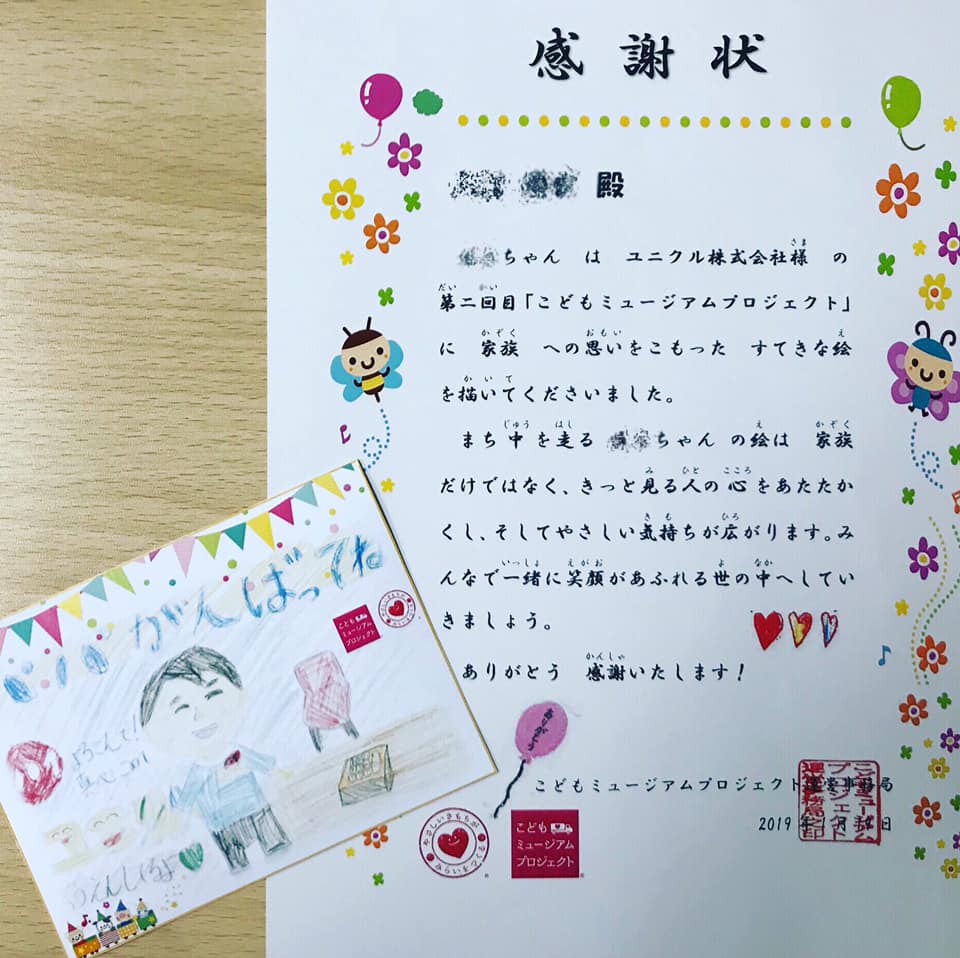 感謝状
殿
ちゃん は ユニクル株式会社様 の
第二回目「こどもミュージアムプロジェクト」
に 家族 への思いをこもった すてきな絵
を描いてくださいました。
まち中を走る ちゃん の絵は 家族
だけではなく、きっと見る人の心をあたたか
くし、そしてやさしい気持ちが広がります。み
んなで一緒に笑顔があふれる世の中へしてい
きましょう。
ありがとう 感謝いたします!
ありがとう
こどもミュージアムプロジェクト運営事務局
2019年 月 日
こども
ミュージアム
プロジェクト
パパがんばってね
こども
ミュージアム
プロジェクト
おうえんしてるよ